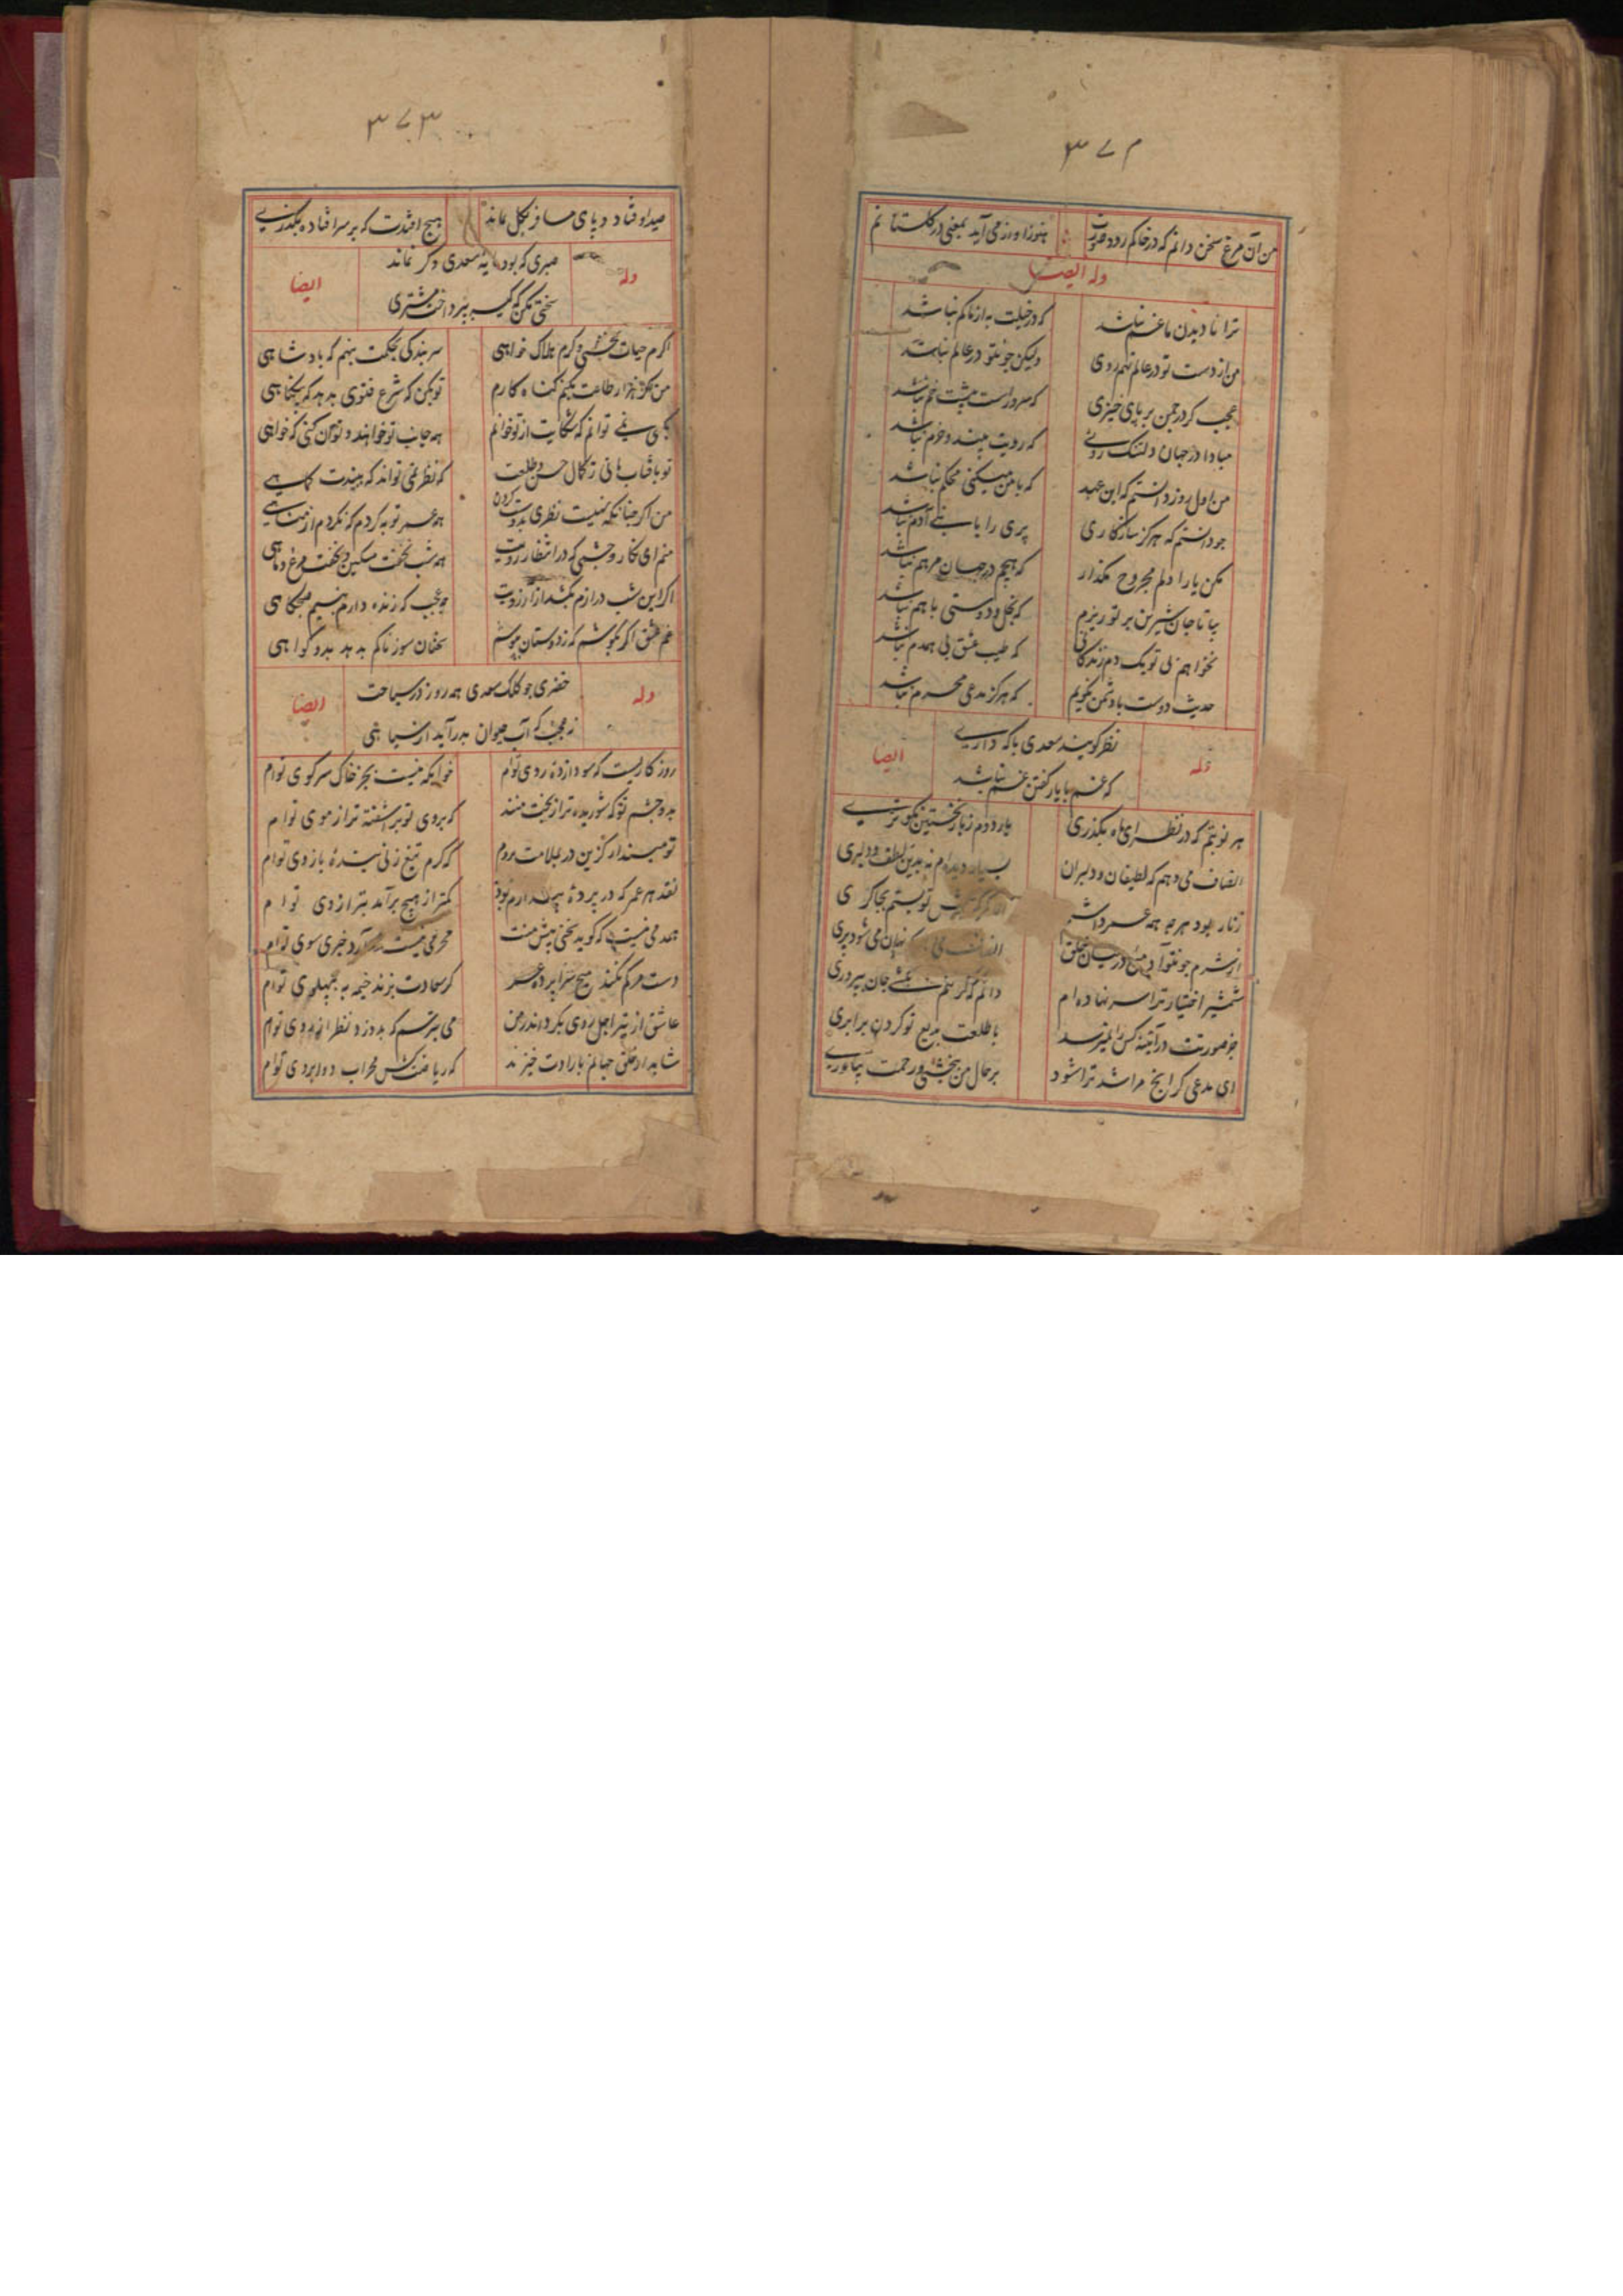 ۳۷۲
من آن مرغ سخن دانم که در خاکم رود صورت هنوز آواز می آید بمعنی در گلستانم
وله ایضا
ترا نادیدن ما غم نباشد که در خیلت به از ما کم نباشد
من از دست تو در عالم نهم روی ولیکن چونتو در عالم نباشد
عجب گر در چمن بر پای خیزی که سرو راست پیشت خم نباشد
مبادا در جهان دلتنگ روئی که رویت بیند و خرم نباشد
من اول روز دانستم که این عهد که با من میکنی محکم نباشد
چو دانستم که هرگز سازگاری پری را با بنی آدم نباشد
مکن یارا دلم مجروح مگذار که هیچم در جهان مرهم نباشد
بیا تا جان شیرین بر تو ریزم که بخل و دوستی با هم نباشد
نخواهم بی تو یک دم زندگانی که طیب عیش بی همدم نباشد
حدیث دوست با دشمن نگویم که هرگز مدعی محرم نباشد
وله
نظر گویند سعدی با که داری
که غم با یار گفتن غم نباشد
ایضا
هر نوبتم که در نظر ای ماه بگذری بار دوم ز بار نخستین نکوتری
انصاف می دهم که لطیفان و دلبران بسیار دیده ام نه بدین لطف و دلبری
زنار بود هر چه همه عمر داشتم تو بستم بچاکری
از شرم چونتو آدمئی در میان خلق انصاف نهان می شود پری
شمشیر اختیار ترا سر نهاده ام دانم که گر تنم بکشی جان بپروری
جز صورتت در آینه کس را نمیرسد با طلعت بدیع تو کردن برابری
ای مدعی گر آنچ مرا شد ترا شود بر حال من ببخشی و رحمت بیاوری
۳۷۳
صید اوفتاد و پای مسافر بگل بماند هیچ افتدت که بر سر افتاده بگذری
وله
صبری که بود مایه سعدی دگر نماند
سختی مکن که کیسه بپرداخت مشتری
ایضا
اگرم حیات بخشی و گرم هلاک خواهی سر بندگی بحکمت بنهم که پادشاهی
من اگر هزار طاعت بکنم گناه کارم تو بکن که شرع فتوی بدهد که بیگناهی
بکسی نمی توانم که شکایت از تو خوانم همه جانب تو خواهند و تو آن کنی که خواهی
تو بآفتاب مانی ز کمال حسن و طلعت که نظر نمی تواند که ببیندت کماهی
من اگر چنانکه نهیست نظری بدوست کردن همه عمر توبه کردم که نگردم از مناهی
منم ای نگار و چشمی که در انتظار رویت همه شب نخفت مسکین و بخفت مرغ و ماهی
اگر این شب درازم بکشد از آرزویت چو عجب که زنده دارم بنسیم صبحگاهی
غم عشق اگر بکوشم که ز دوستان بپوشم سخنان سوزناکم بدهد بدو گواهی
وله
خضری چو کلک سعدی همه روز در سیاحت
نه عجب که آب حیوان بدر آید از سیاهی
ایضا
روزگاریست که سودازدهٔ روی توام خوابگه نیست بجز خاک سر کوی توام
بدو چشم تو که شوریده تر از بخت منند که بروی تو بر آشفته تر از موی توام
تو مپندار کزین در بملامت بروم که گرم تیغ زنی بندهٔ بازوی توام
نقد هر عمر که در پردهٔ پندارم بود کمتر از هیچ برآمد بترازوی توام
همدمی نیست که گوید سخنی پیش منت محرمی نیست که آرد خبری سوی توام
دست مرگم نکند میخ سراپرده عمر گر سعادت بزند خیمه به پهلوی توام
عاشق از تیر اجل روی بگرداند و من می بترسم که بدوزد نظر از روی توام
شاید از خلق جهانم بارادت خیزند که ریاضت کش محراب دو ابروی توام